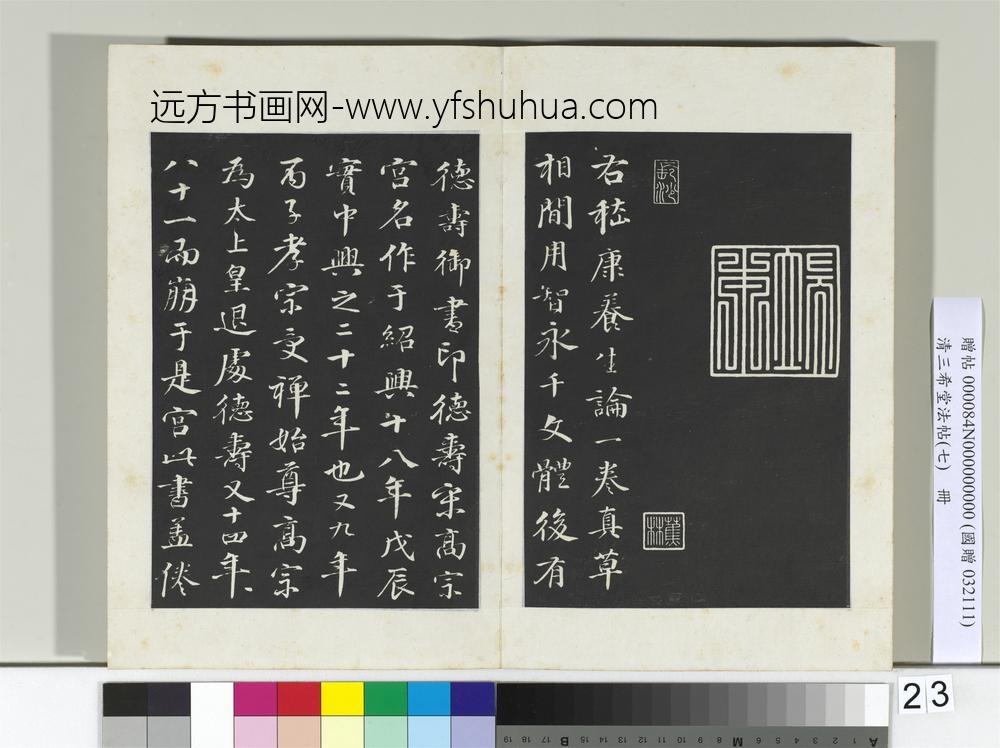 远方书画网-www.yfshuhua.com
右嵇康養生論一卷真草
相間用智永千文體後有
德壽御書印德壽宋高宗
宫名作于紹興十八年戊辰
實中興之二十二年也又九年
丙子孝宗受禪始尊高宗
為太上皇退處德壽又十四年
八十一而崩于是宫此書盖倦
蕉林
贈帖 000084N000000000 (國贈 032111)
清三希堂法帖(七) 冊
23
A 1 2 3 4 5 6 M 8 9 10 11 12 13 14 15 B 17 18 19